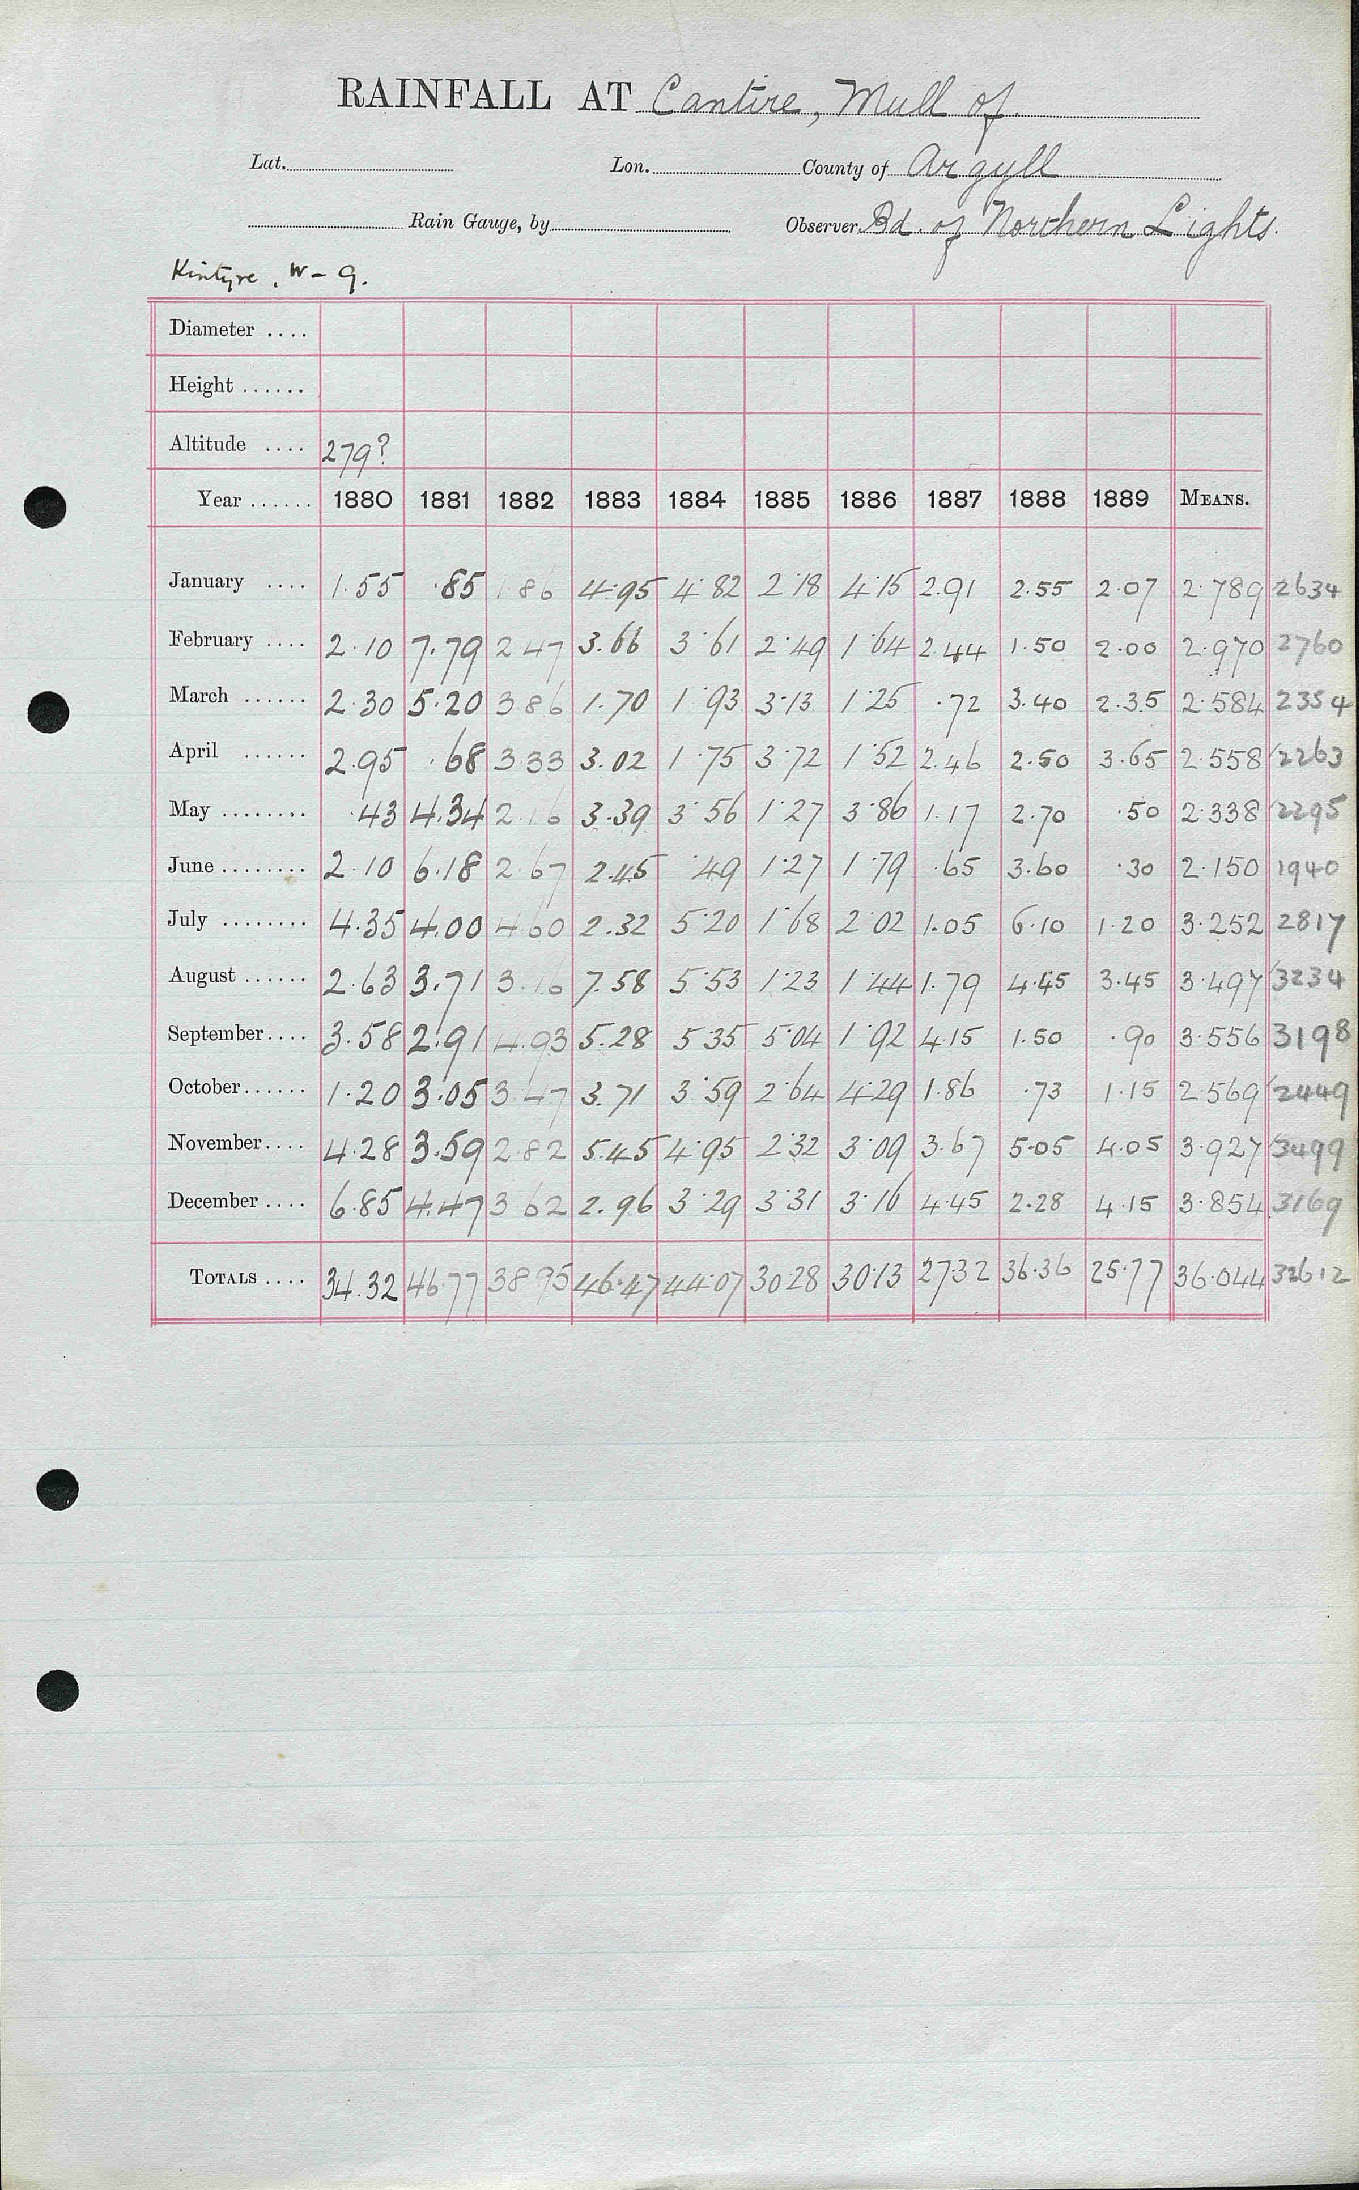 RAINFALL AT Cantire, Mull of
Lat. Lon. County of Argyll
Rain Gauge, by Observer Bd. of Northern Lights.
Kintyre, W-9.
Diameter ....
Height ......
Altitude .... 279?
Year ...... 1880 1881 1882 1883 1884 1885 1886 1887 1888 1889 MEANS.
January .... 1.55 .85 1.86 4.95 4.82 2.18 4.15 2.91 2.55 2.07 2.789 2634
February .... 2.10 7.79 2.47 3.66 3.61 2.49 1.64 2.44 1.50 2.00 2.970 2760
March ...... 2.30 5.20 3.86 1.70 1.93 3.13 1.25 .72 3.40 2.35 2.584 2354
April ...... 2.95 .68 3.33 3.02 1.75 3.72 1.52 2.46 2.50 3.65 2.558 2263
May ........ .43 4.34 2.16 3.39 3.56 1.27 3.86 1.17 2.70 .50 2.338 2295
June ........ 2.10 6.18 2.67 2.45 .49 1.27 1.79 .65 3.60 .30 2.150 1940
July ........ 4.35 4.00 4.60 2.32 5.20 1.68 2.02 1.05 6.10 1.20 3.252 2817
August ...... 2.63 3.71 3.16 7.58 5.53 1.23 1.44 1.79 4.45 3.45 3.497 3234
September.... 3.58 2.91 4.93 5.28 5.35 5.04 1.92 4.15 1.50 .90 3.556 3198
October...... 1.20 3.05 3.47 3.71 3.59 2.64 4.29 1.86 .73 1.15 2.569 2449
November.... 4.28 3.59 2.82 5.45 4.95 2.32 3.09 3.67 5.05 4.05 3.927 3499
December .... 6.85 4.47 3.62 2.96 3.29 3.31 3.16 4.45 2.28 4.15 3.854 3169
TOTALS .... 34.32 46.77 38.95 46.47 44.07 30.28 30.13 27.32 36.36 25.77 36.044 32612